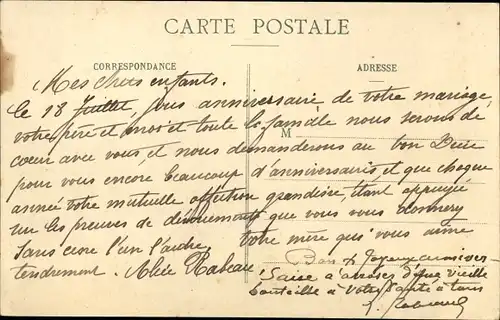 CARTE POSTALE
CORRESPONDANCE
ADRESSE
Mes chers enfants.
le 18 Juillet, jour anniversaire, de votre mariage,
votre père et moi et toute la famille nous serons de
M
cœur avec vous, et nous demanderons au bon Dieu
pour vous encore beaucoup d'anniversaires et que chaque
année votre mutuelle affection grandisse, étant appuyée
sur les preuves de dévouement que vous vous donnerez
sans cesse l'un l'autre. Votre mère qui vous aime
tendrement. Alice
Bon & Joyeux anniver-
saire à arroser d'une vieille
bouteille à votre santé à tous